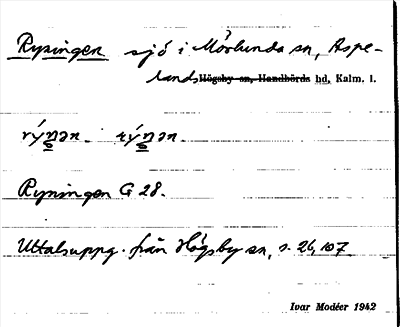 Ryningen sjö i Mörlunda sn, Aspe-
lands Högsby sn, Handbörds hd, Kalm. l.
rýŋən. rýŋən.
Ryningen G 28.
Uttalsuppg. från Högsby sn, s. 26, 107
Ivar Modéer 1942